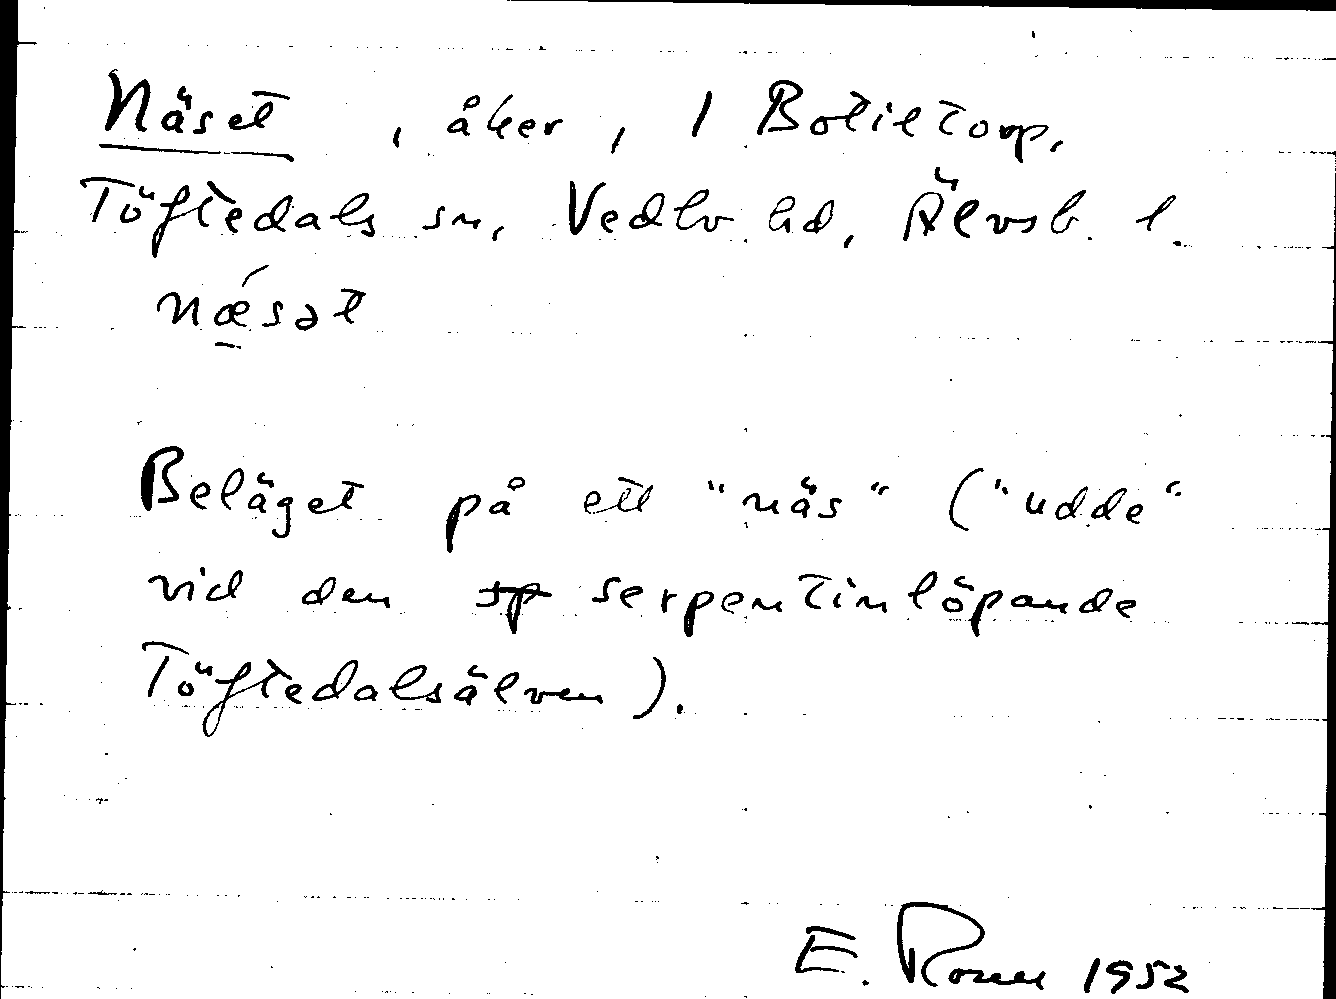 Näset , åker , 1 Botiltorp,
Töftedals sn, Vedbo hd, Älvsb. l.
næ´sət
Beläget på ett "näs" ("udde"
vid den sp serpentinlöpande
Töftedalsälven).
E. 1952